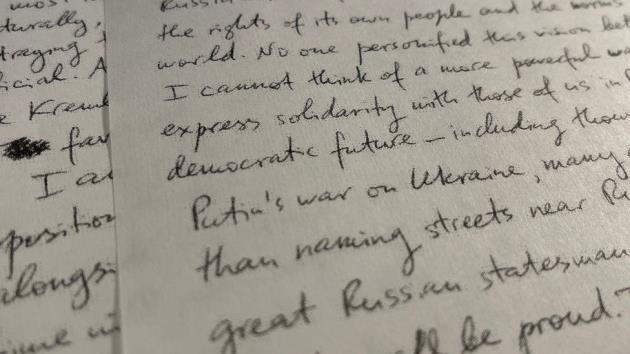 turally,
traying
icial. A
Kreml
fav
I a
position
alongsi
Russia
the rights of its own people and the norms
world. No one personified this vision bet
I cannot think of a more powerful wa
express solidarity with those of us in
democratic future – including thou
Putin's war on Ukraine, many
than naming streets near Ru
great Russian statesman
ll be proud."